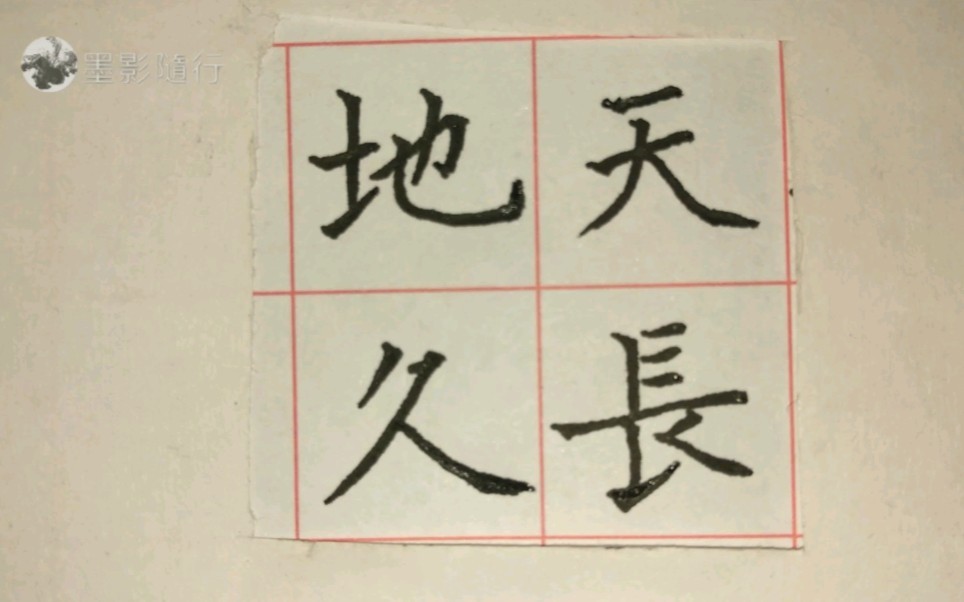 墨影隨行
天長
地久